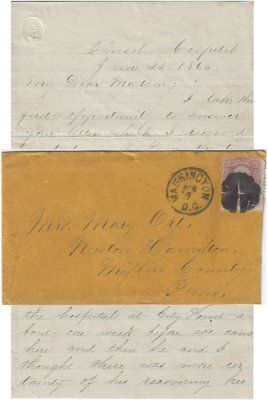 Lincoln Hospital
June 23. 186
My Dear Madam;
I take the
first opportunity to answer
your letter which I received
WASHINGTON
JUN
D.C.
Mrs. Mary Ort.
Newton Hamilton.
Mifflin County.
Penn.
the hospital at City Point a-
bout one week before we came
here and then he and I
thought there was more cer
tainty of his recovering his